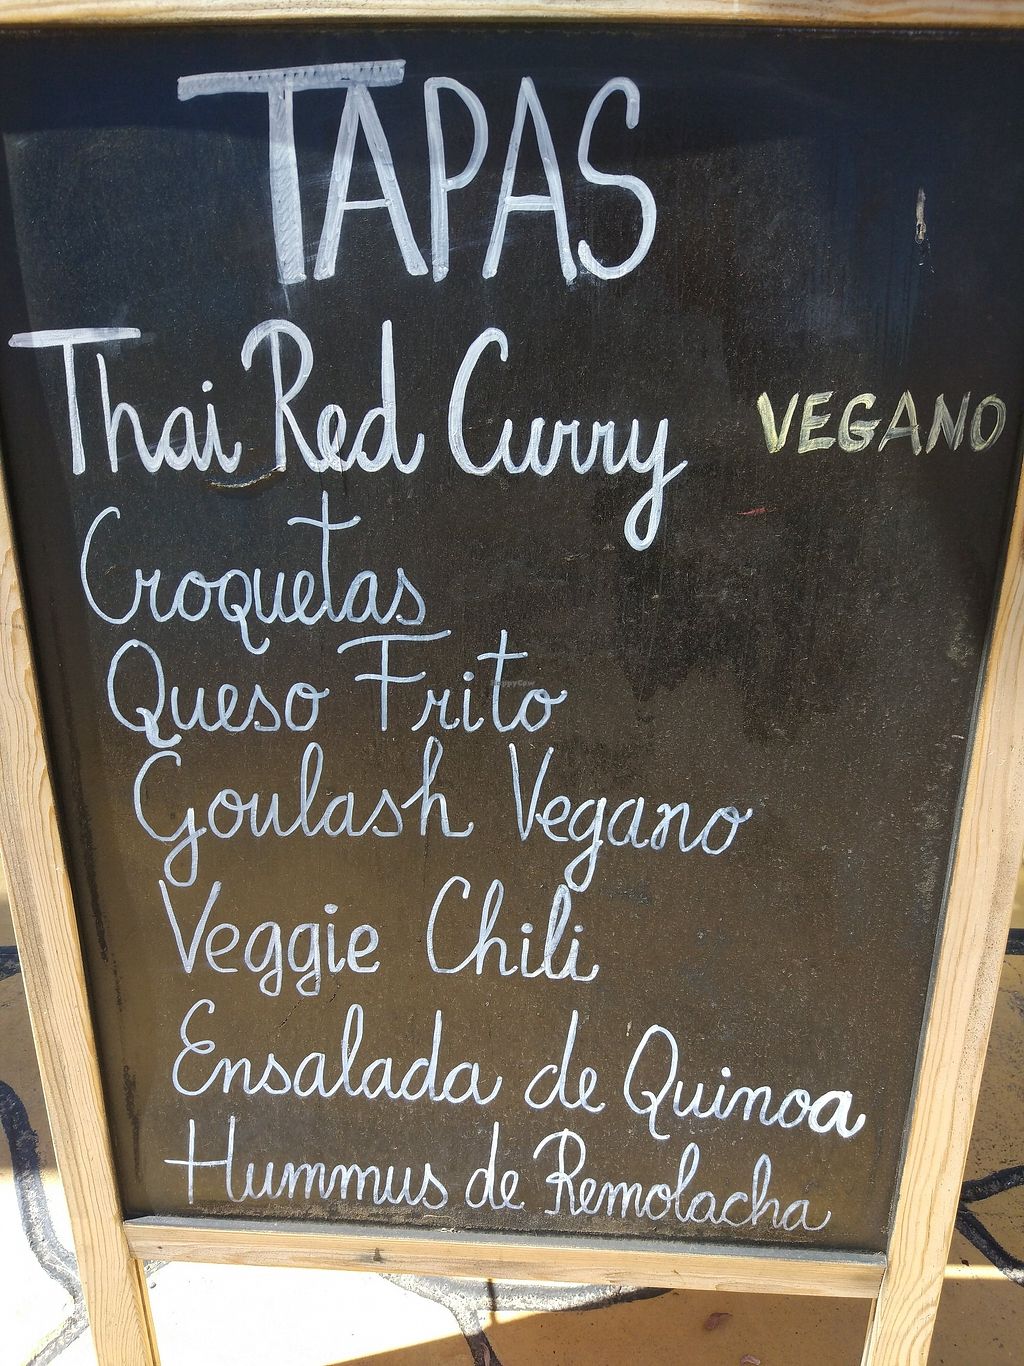 TAPAS
Thai Red Curry VEGANO
Croquetas
Queso Frito
HappyCow
Goulash Vegano
Veggie Chili
Ensalada de Quinoa
Hummus de Remolacha